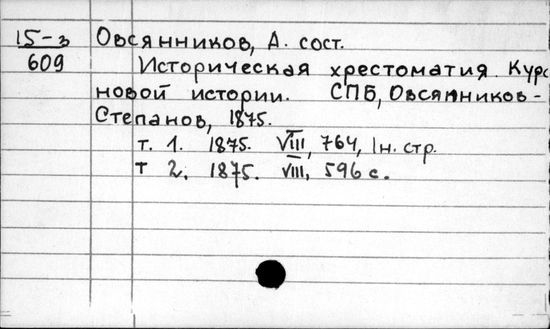 15-з Овсянников, А. сост.
609 Историческая хрестоматия. Курс
новой истории. СПБ, Овсянников-
Степанов, 1875.
т. 1. 1875. VIII, 764, 1н. стр.
т 2. 1875. VIII, 596 с.